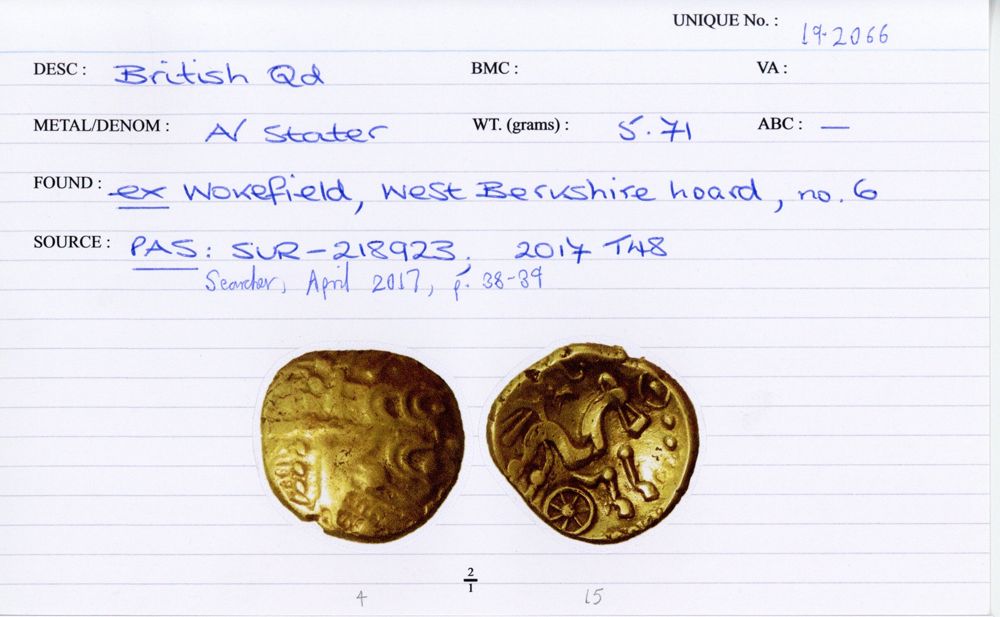 UNIQUE No. : 19.2066
DESC : British Qd BMC : VA :
METAL/DENOM : A/ Stater WT. (grams) : 5.71 ABC : —
FOUND : ex Wokefield, West Berkshire hoard, no. 6
SOURCE : PAS: SUR-218923, 2017 T48
Searcher, April 2017, p. 38-39
2
1
4 15